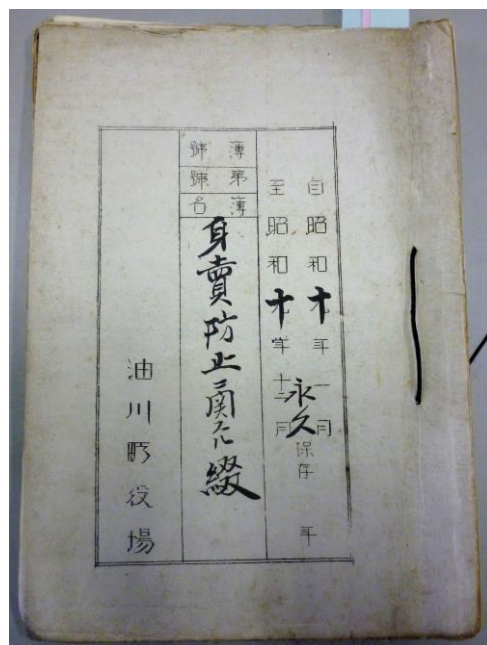 自昭和十年一月
至昭和十年十二月
永久保存 年
簿號
第 號
簿名
身賣防止ニ関スル綴
油川町役場